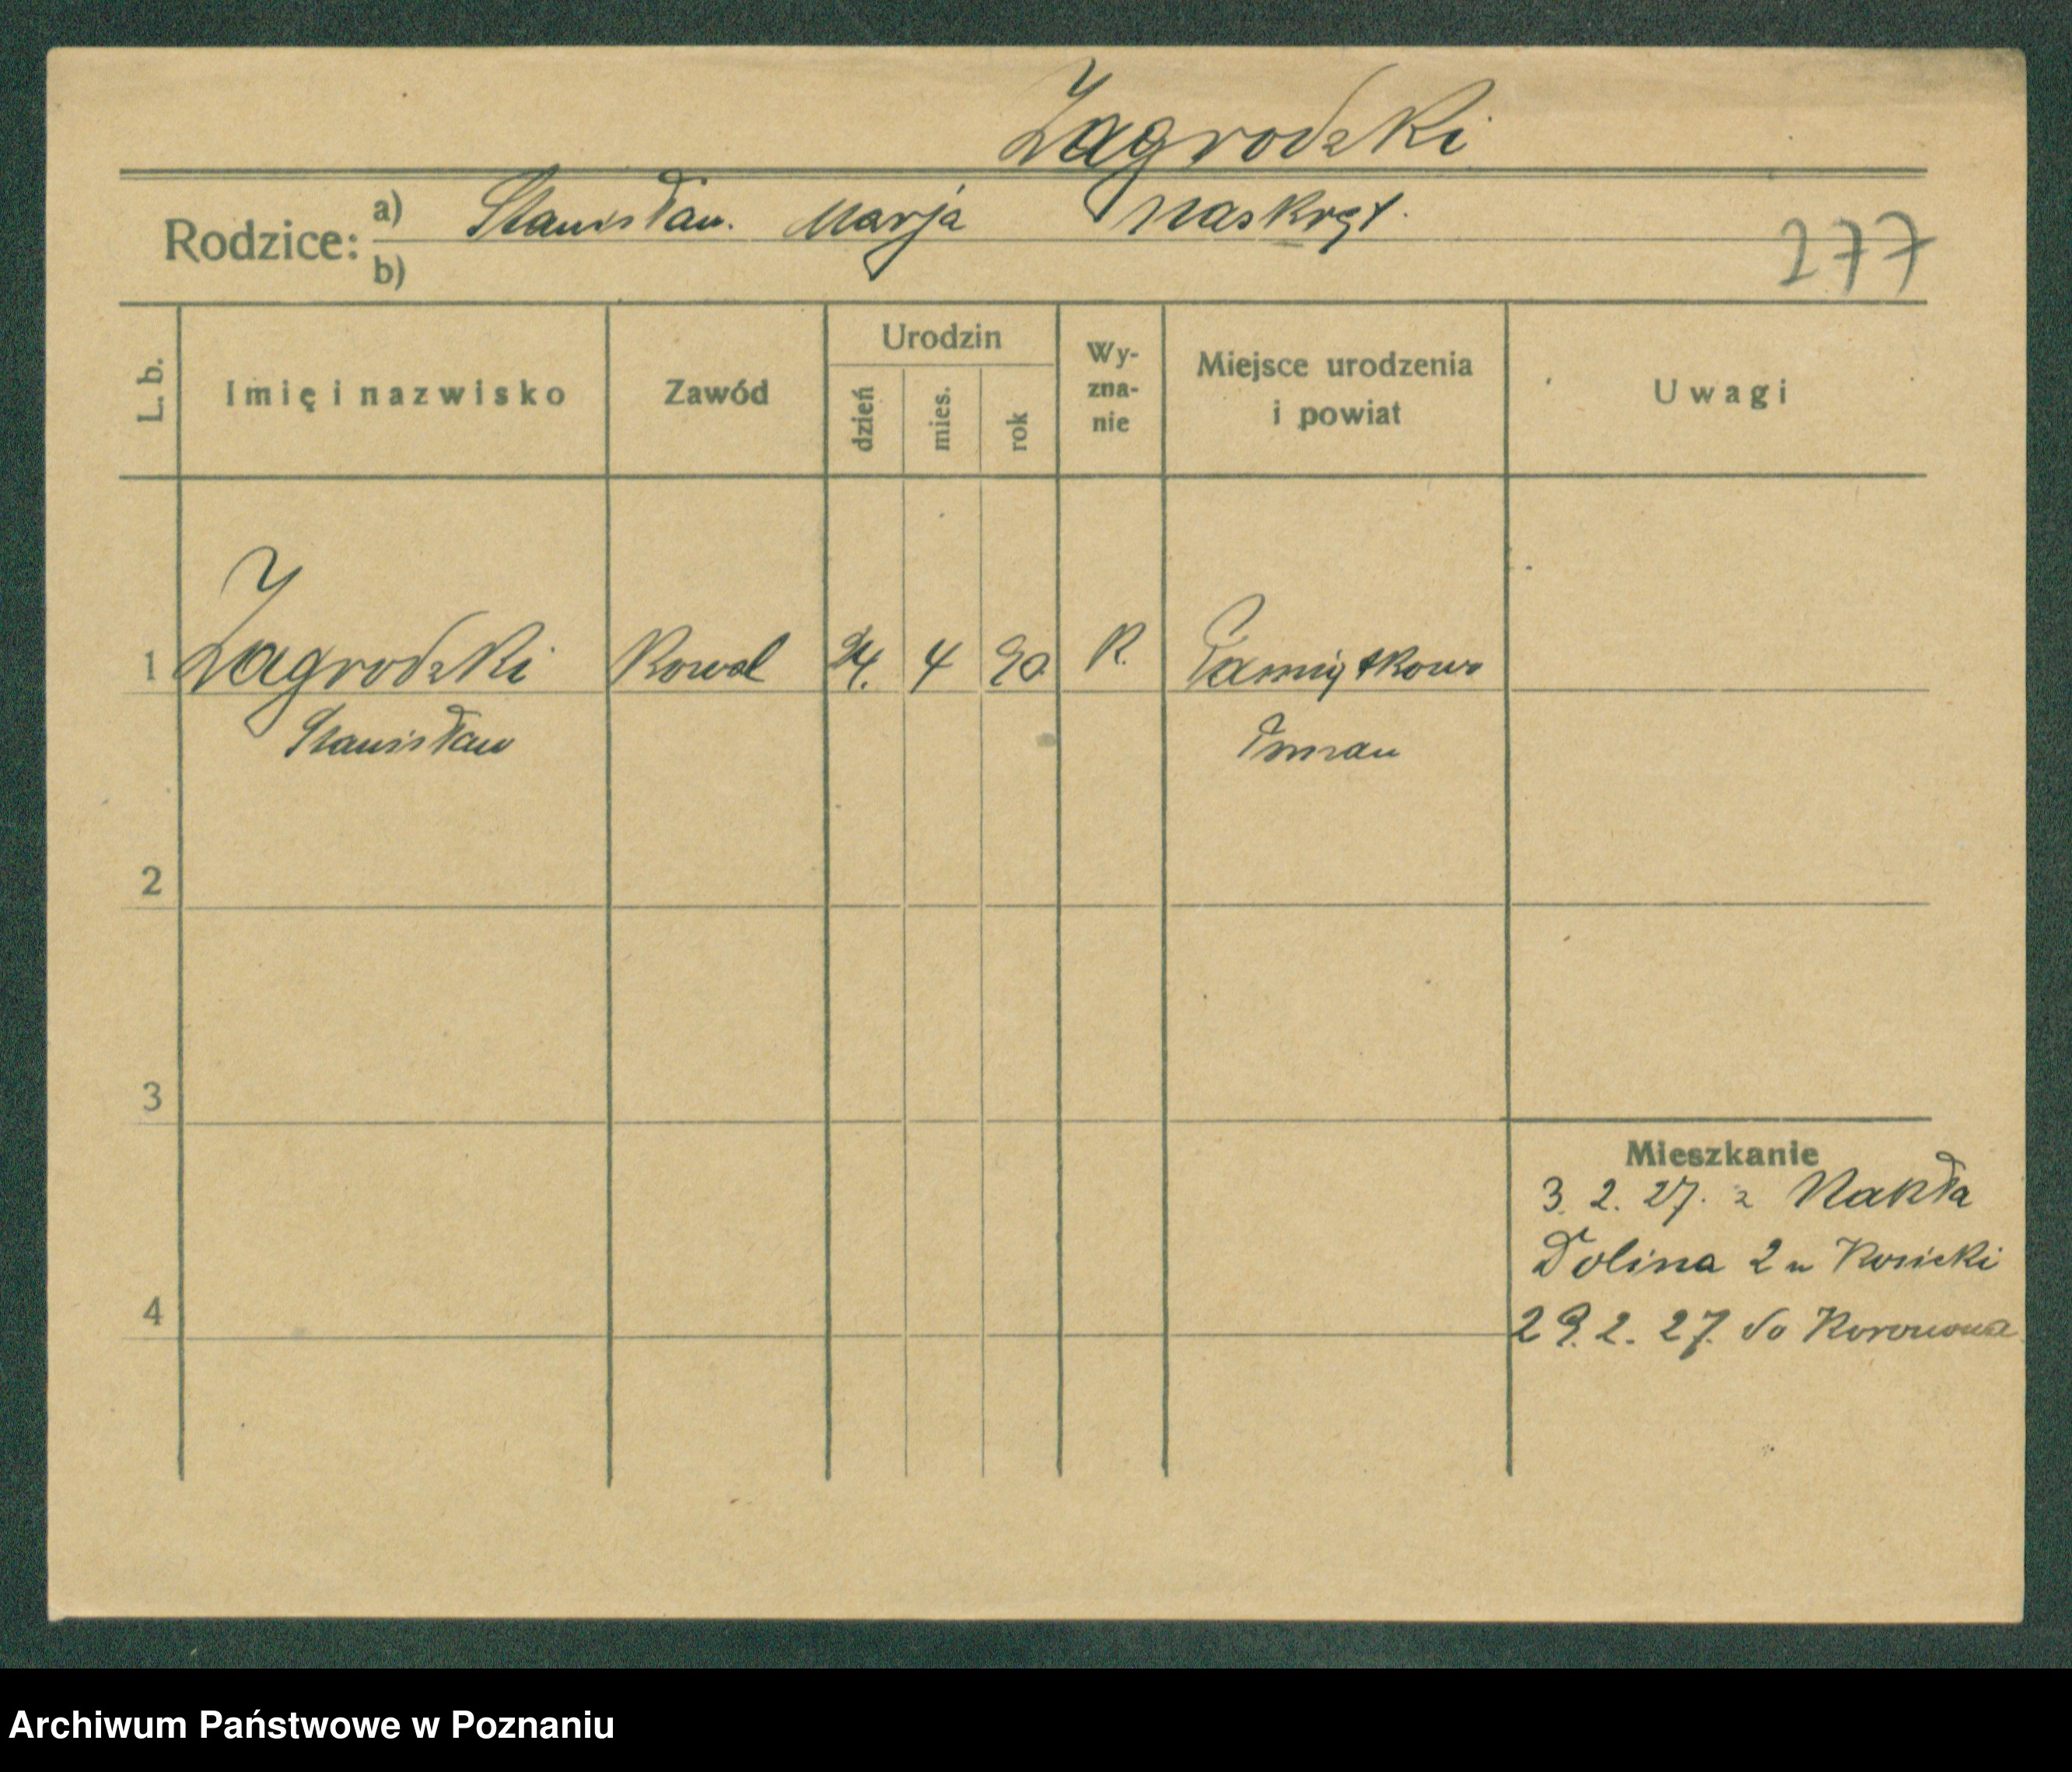 Zagrodzki
Rodzice: a) Stanisław. Marja Naskręt.
b)
277
L. b. Imię i nazwisko Zawód Urodzin dzień mies. rok Wy-zna-nie Miejsce urodzenia i powiat Uwagi
1 Zagrodzki Kowal 24. 4 90 R. Pamiątkowo
Stanisław Poznań
2
3
Mieszkanie
3. 2. 27. z Nakła
Dolina 2 u Kosicki
4
29. 2. 27. do Koronowa
Archiwum Państwowe w Poznaniu